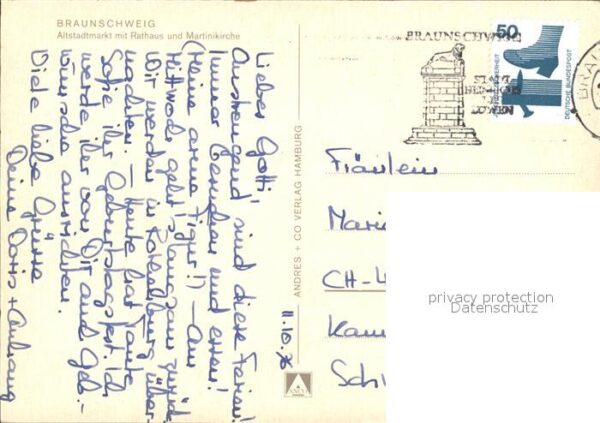 BRAUNSCHWEIG
Altstadtmarkt mit Rathaus und Martinikirche
Liebes Gotti,
Anstrengend sind diese Ferien!
Immer Besuchen und essen!
(Meine arme Figur!) – Am
Mittwoch geht's langsam zurück.
Wir werden in Rothenburg über-
nachten. – Heute hat Tante
Sofie ihr Geburtstagsfest. Ich
werde ihr von Dir auch Geb.-
wünsche ausrichten.
Viele liebe Grüsse
Deine Doris +
11.10.76
ANDRES + CO VERLAG HAMBURG
BRAUNSCHWEIG
STADT
HEINRICHS
DES
LÖWEN
50
DEUTSCHE BUNDESPOST
BRAU
Fräulein
Maria
CH-4
Kam
Sch
privacy protection
Datenschutz